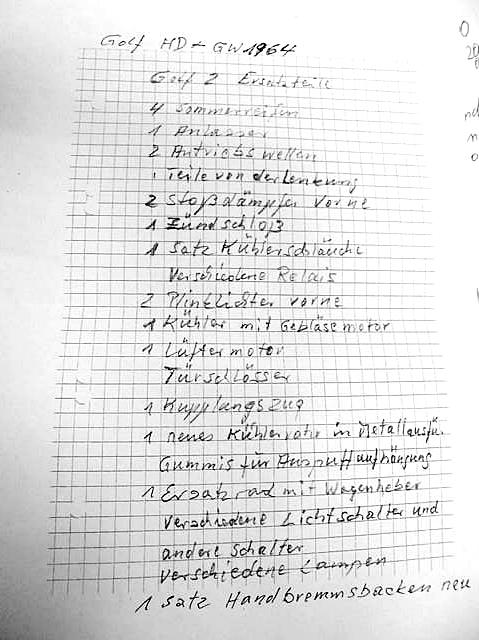 Golf HD + GW1964
Golf 2 Ersatzteile
4 Sommerreifen
1 Anlasser
2 Antriebswellen
Teile von der Lenkung
2 Stoßdämpfer vorne
1 Zündschloß
1 Satz Kühlerschläuche
Verschiedene Relais
2 Plinklichter vorne
1 Kühler mit Gebläsemotor
1 Lüftermotor
Türschlösser
1 Kupplungszug
1 neues Kühlerrohr in Metallausfü.
Gummis für Auspuffaufhängung
1 Ersatzrad mit Wagenheber
Verschiedene Lichtschalter und
andere Schalter
Verschiedene Lampen
1 Satz Handbremmsbacken neu